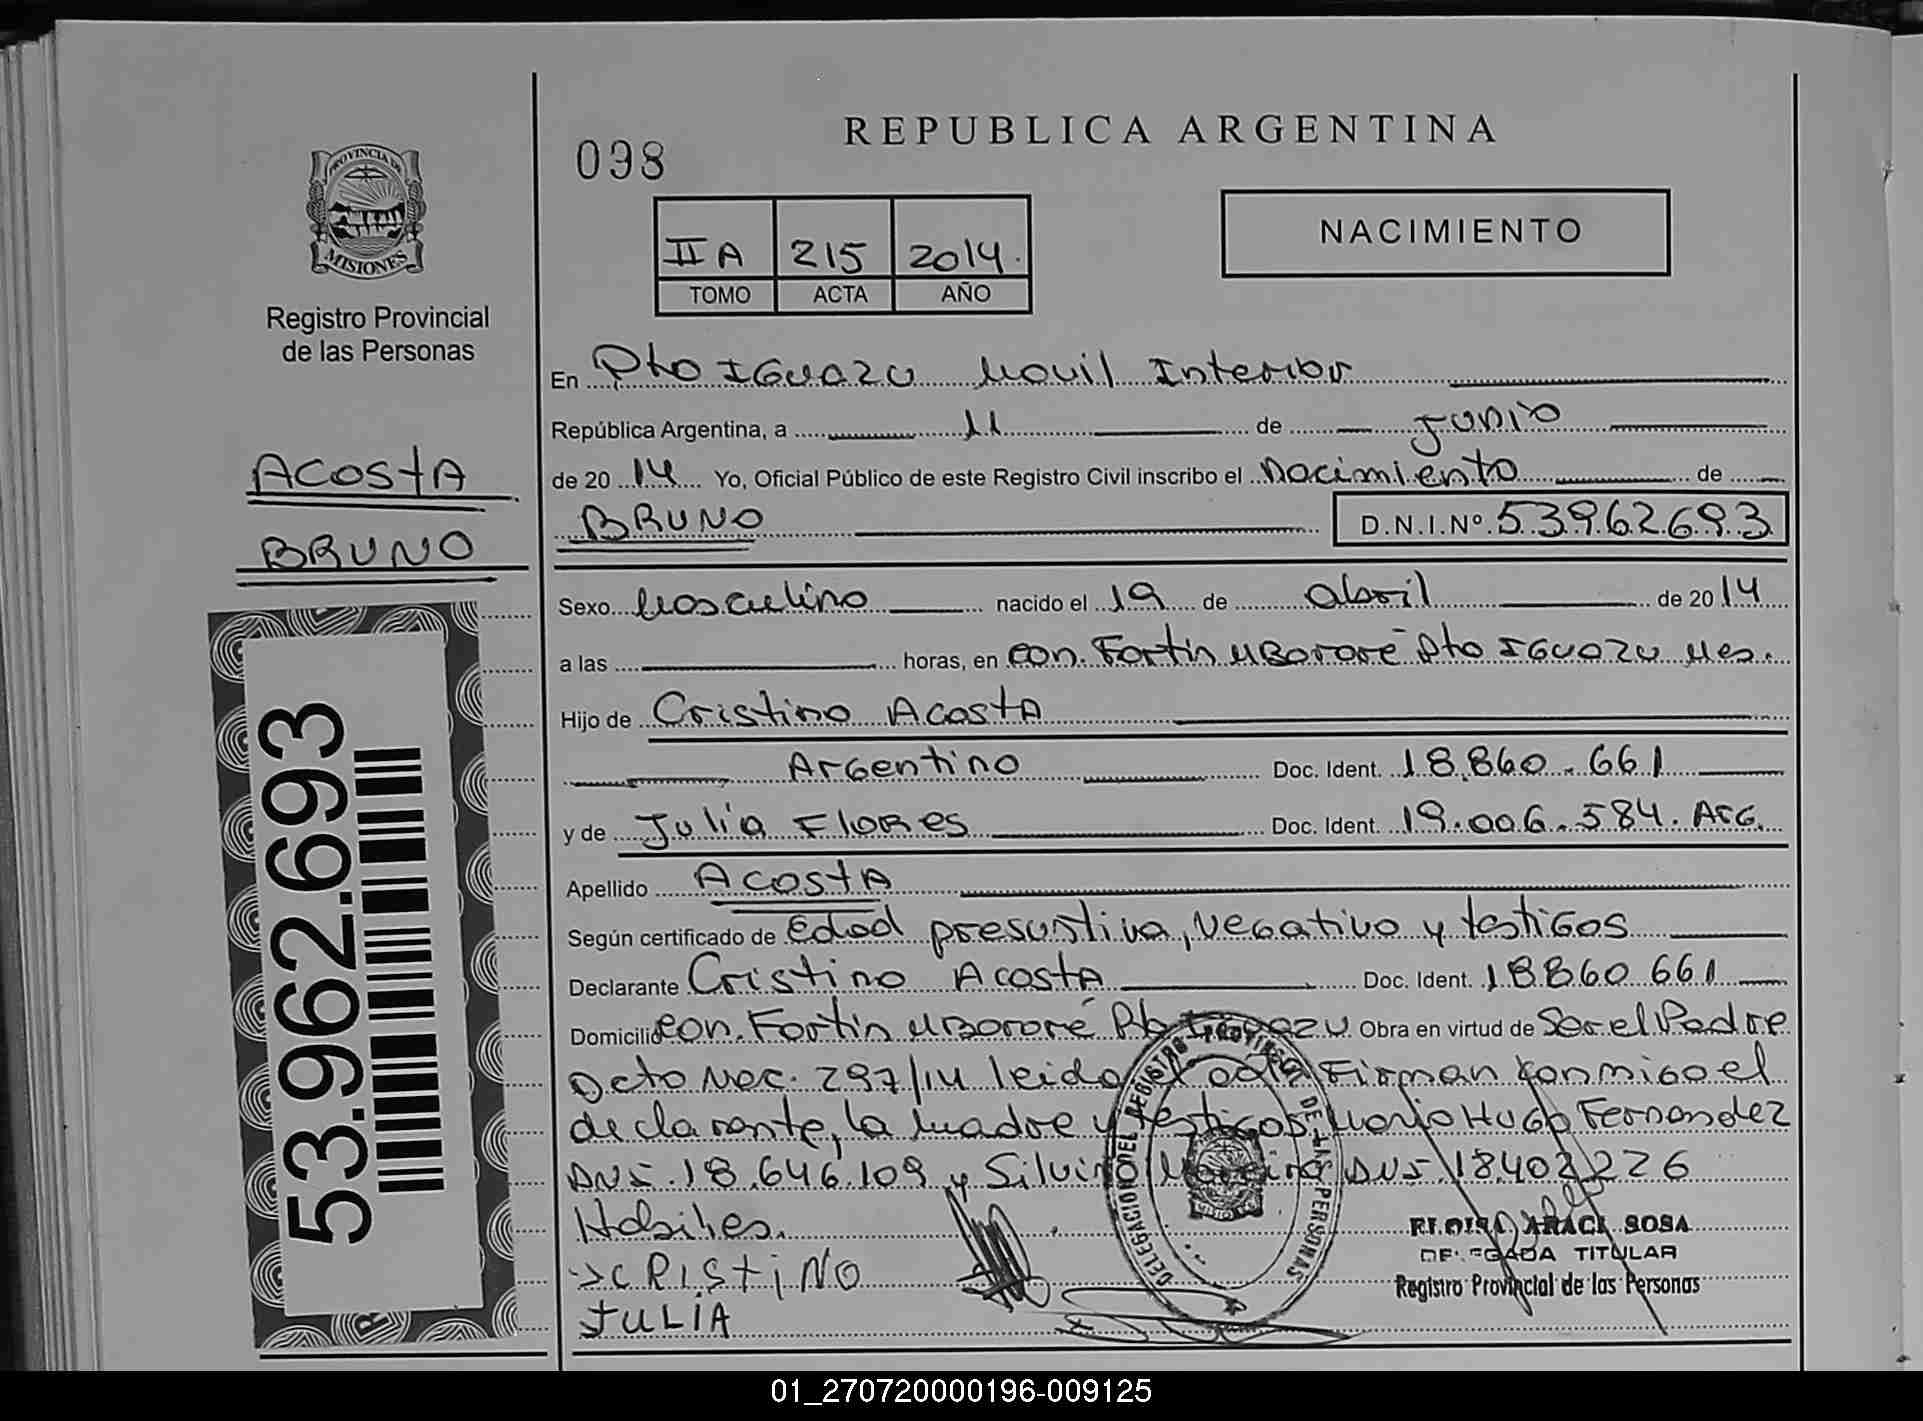 REPUBLICA ARGENTINA
098
PROVINCIA DE
MISIONES
Registro Provincial
de las Personas
II A 215 2014.
TOMO ACTA AÑO
NACIMIENTO
En Pto IGUAZU Movil Interior
República Argentina, a 11 de junio
de 20 14 Yo, Oficial Público de este Registro Civil inscribo el Nacimiento de
BRUNO D.N.I.Nº 53962693
ACOSTA
BRUNO
Sexo Masculino nacido el 19 de abril de 20 14
a las horas, en con. Fortin MBororé Pto IGUAZU Mes.
Hijo de Cristino Acosta
Argentino Doc. Ident. 18.860.661
y de Julia Flores Doc. Ident. 19.006.584. Arg.
Apellido Acosta
Según certificado de Edad presuntiva, Negativo y testigos
Declarante Cristino Acosta Doc. Ident. 18860661
Domicilio con. Fortin MBororé Obra en virtud de Ser el Padre
Acto Nac. 297/14 leido el Firman conmigo el
declarante, la madre y testigos: Mario Hugo Fernandez
DNI. 18.646.109 y DNI 18.402226
Habiles.
CRISTINO
JULIA
DELEGACION DEL REGISTRO PROVINCIAL DE LAS PERSONAS
ARACI SOSA
DELEGADA TITULAR
Registro Provincial de las Personas
53.962.693
01_270720000196-009125